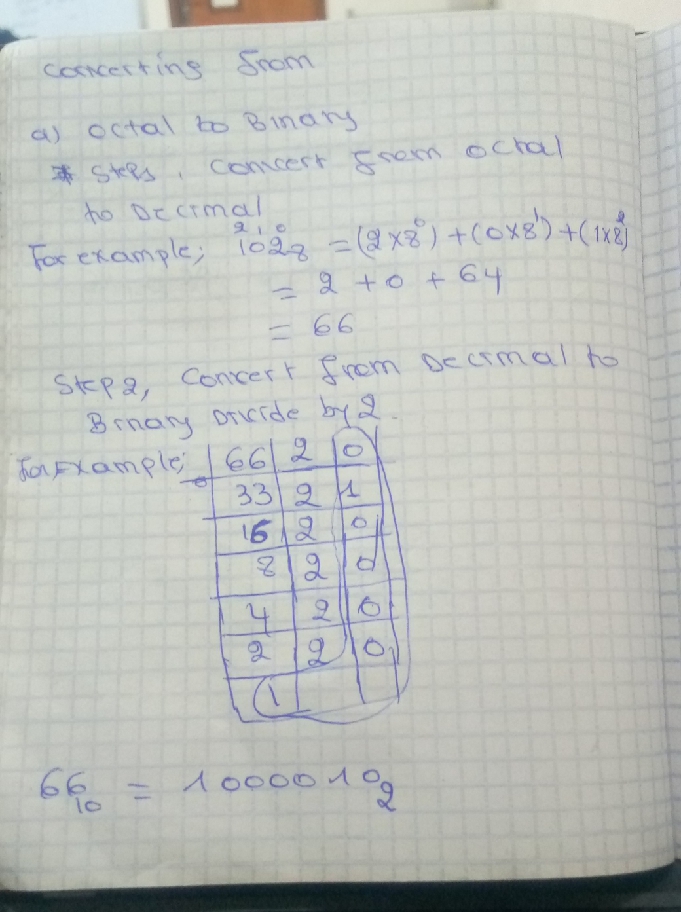 Converting from
a) Octal to Binary
* Step1, Convert from octal
to Decimal
For example; 102₈ = (2×8⁰) + (0×8¹) + (1×8²)
2 1 0
= 2 + 0 + 64
= 66
Step 2, Convert from Decimal to
Binary Divide by 2.
For Example; 66 2 0
33 2 1
16 2 0
8 2 0
4 2 0
2 2 0
1
66₁₀ = 1000010₂